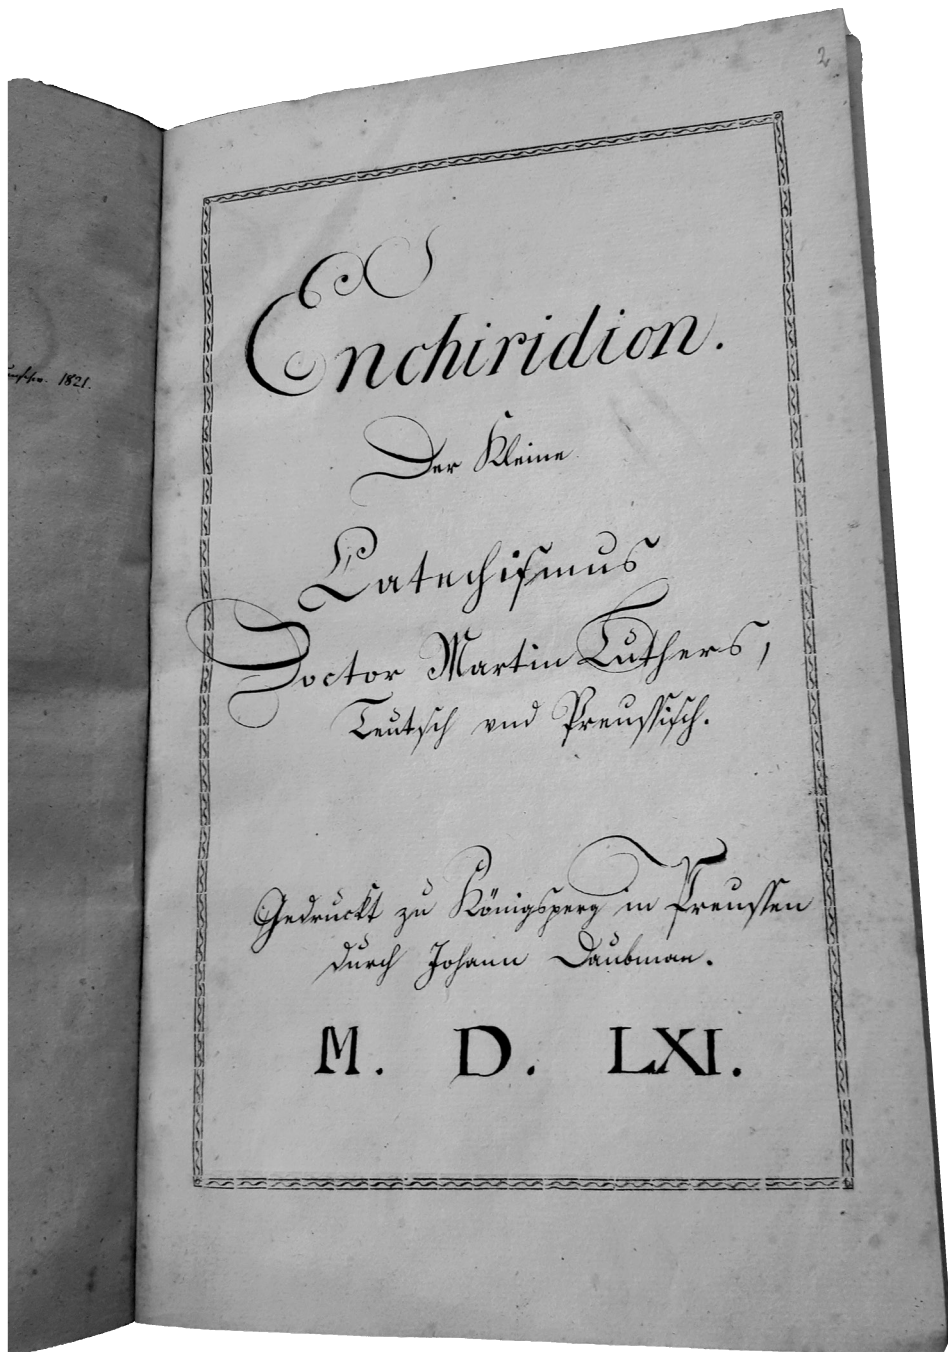 2
1821.
Enchiridion.
Der Kleine
Catechiſmus
Doctor Martin Luthers,
Teutſch vnd Preuſſiſch.
Gedruckt zu Königsperg in Preuſſen
durch Johann Daubman.
M. D. LXI.